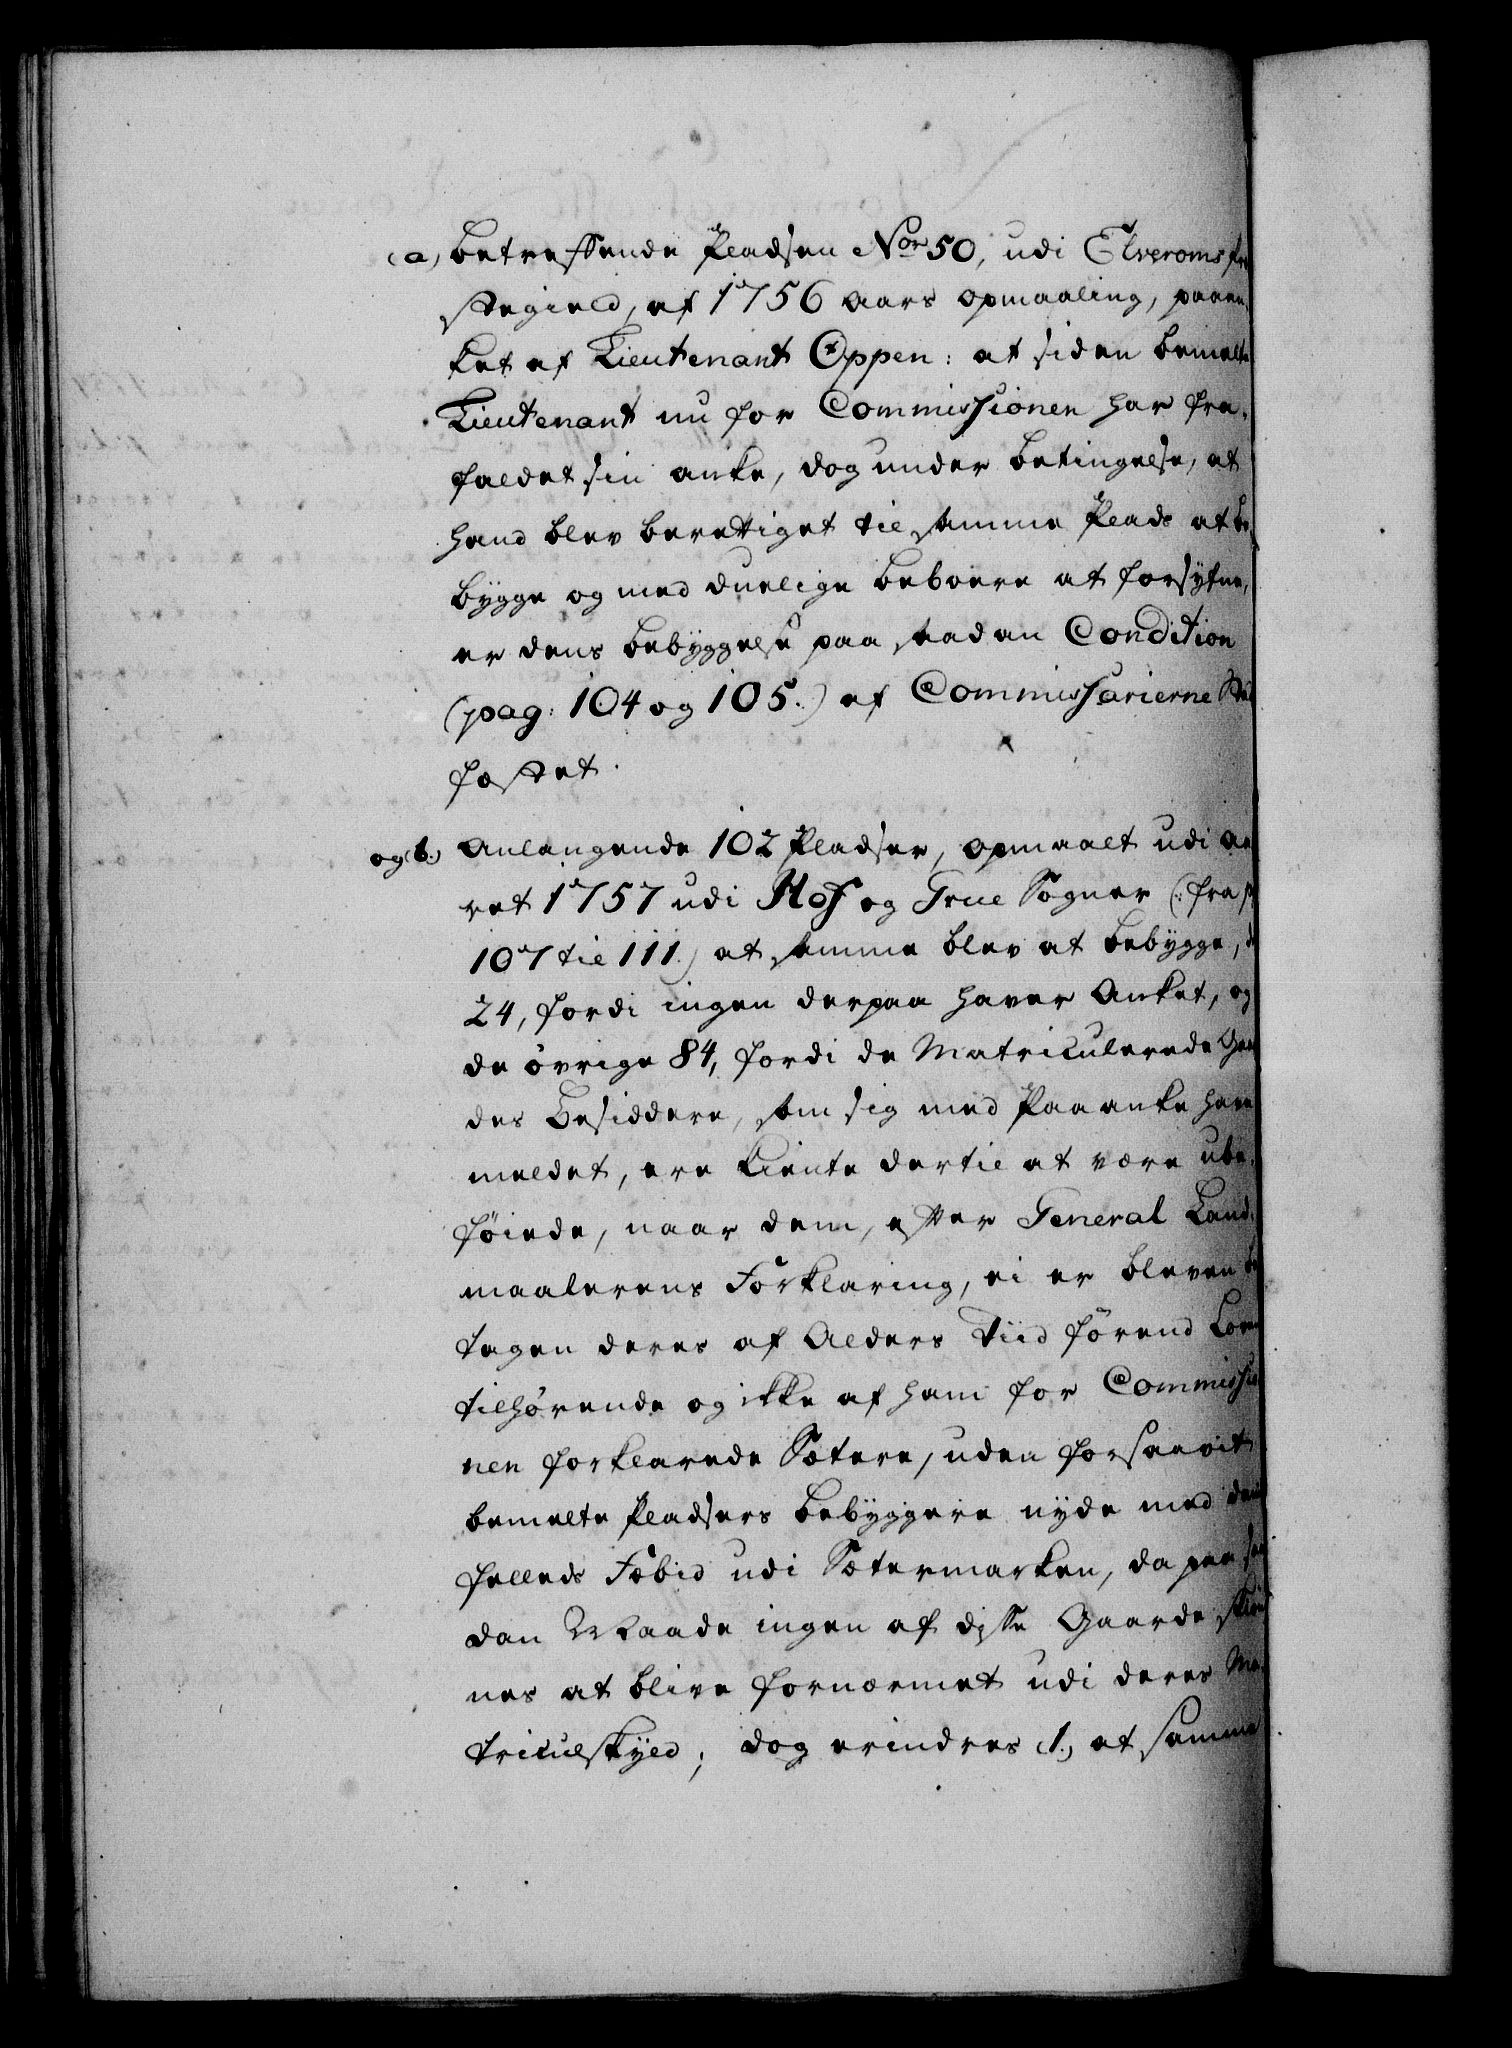 (a) betreffende Pladsen No 50, udi Elveroms præ
stegield, af 1756 aars opmaaling, paaan-
ket af Lieutenant Oppen: at siden bemelte
Lieutenant nu for Commissionen har fra-
faldet sin anke, dog under betingelse, at
hand blev berettiget til samme Plads at be-
bygge og med duelige beboere at forsyne,
er dens bebyggelse paa saadan Condition
(pag: 104 og 105.) af Commissarierne Stad
fæstet.
og (b.) Anlangende 102 Pladser, opmaalt udi Aa
ret 1757 udi Hof og Grue Sogner (: fra p.
107 til 111.) at samme blev at bebygge, de
24, fordi ingen derpaa haver Anket, og
de øvrige 84, fordi de Matriculerede Gaar
des Besiddere, som sig med Paaanke have
meldet, ere kiente dertil at være ube-
føiede, naar dem, efter General Land-
maalerens Forklaring, ei er bleven be
tagen deres af Alders Tiid förend Loven
tilhørende og ikke af ham for Commissio
nen forklarede Sætere, uden forsaavit
bemelte Pladsers bebyggere nyde med dem
fælleds Fæbid udi Sætermarken, da paa saa
dan Maade ingen af disse Gaarde skiøn
nes at blive fornærmet udi deres Ma-
triculskyld; dog erindres (1.) at samme